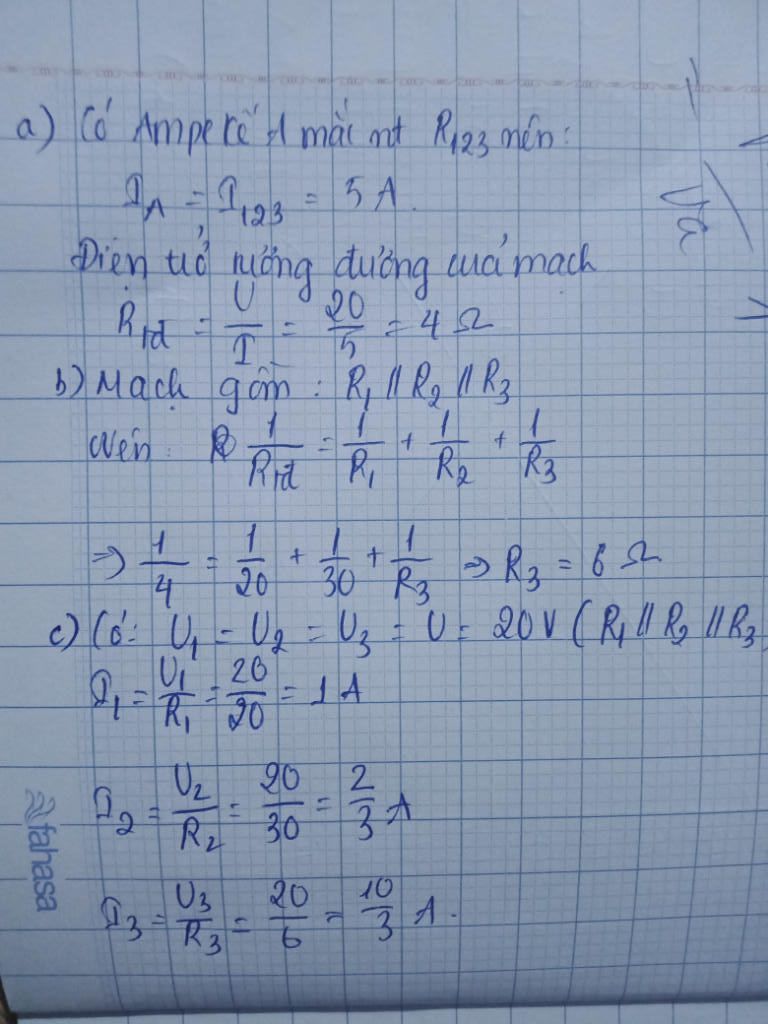 a) Có Ampe kế A mắc nt R₁₂₃ nên:
I_A = I₁₂₃ = 5 A.
Điện trở tương đương của mạch
R_tđ = U/I = 20/5 = 4 Ω
b) Mạch gồm: R₁ // R₂ // R₃
Nên: 1/R_tđ = 1/R₁ + 1/R₂ + 1/R₃
=> 1/4 = 1/20 + 1/30 + 1/R₃ => R₃ = 6 Ω
c) Có: U₁ = U₂ = U₃ = U = 20 V (R₁ // R₂ // R₃
I₁ = U₁/R₁ = 20/20 = 1 A
I₂ = U₂/R₂ = 20/30 = 2/3 A
I₃ = U₃/R₃ = 20/6 = 10/3 A.
fahasa